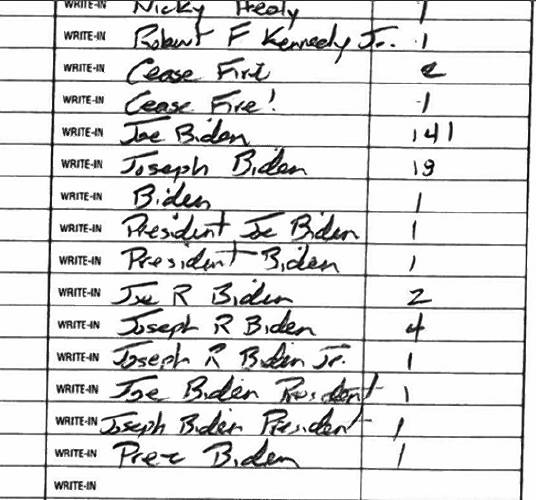 WRITE-IN Nicky Healy 1
WRITE-IN Robert F Kennedy Jr. 1
WRITE-IN Cease Fire 2
WRITE-IN Cease Fire! 1
WRITE-IN Joe Biden 141
WRITE-IN Joseph Biden 19
WRITE-IN Biden 1
WRITE-IN President Joe Biden 1
WRITE-IN President Biden 1
WRITE-IN Joe R Biden 2
WRITE-IN Joseph R Biden 4
WRITE-IN Joseph R Biden Jr. 1
WRITE-IN Joe Biden President 1
WRITE-IN Joseph Biden President 1
WRITE-IN Biden 1
WRITE-IN